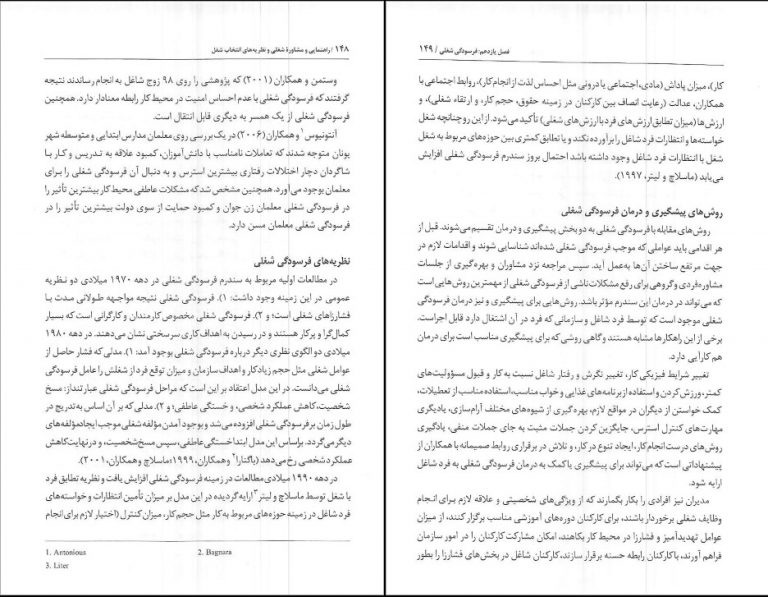 ۱۴۸ / راهنمایی و مشاورهٔ شغلی و نظریه‌های انتخاب شغل
وستمن و همکاران (۲۰۰۱) که پژوهشی را روی ۹۸ زوج شاغل به انجام رساندند نتیجه
گرفتند که فرسودگی شغلی با عدم احساس امنیت در محیط کار رابطه معنادار دارد. همچنین
فرسودگی شغلی از یک همسر به دیگری قابل انتقال است.
آنتونیوس۱ و همکاران (۲۰۰۶) در یک بررسی روی معلمان مدارس ابتدایی و متوسطه شهر
یونان متوجه شدند که تعاملات نامناسب با دانش‌آموزان، کمبود علاقه به تدریس و کار با
شاگردان دچار اختلالات رفتاری بیشترین استرس و به دنبال آن فرسودگی شغلی را برای
معلمان بوجود می‌آورد. همچنین مشخص شد که مشکلات عاطفی محیط کار بیشترین تأثیر را
در فرسودگی شغلی معلمان زن جوان و کمبود حمایت از سوی دولت بیشترین تأثیر را در
فرسودگی شغلی معلمان مسن دارد.
نظریه‌های فرسودگی شغلی
در مطالعات اولیه مربوط به سندرم فرسودگی شغلی در دهه ۱۹۷۰ میلادی دو نظریه
عمومی در این زمینه وجود داشت: ۱). فرسودگی شغلی نتیجه مواجهه طولانی مدت با
فشارزاهای شغلی است؛ و ۲). فرسودگی شغلی مخصوص کارمندان و کارگرانی است که بسیار
کمال‌گرا و پرکار هستند و در رسیدن به اهداف کاری سرسختی نشان می‌دهند. در دهه ۱۹۸۰
میلادی دو الگوی نظری دیگر درباره فرسودگی شغلی بوجود آمد: ۱). مدلی که فشار حاصل از
عوامل شغلی مثل حجم زیاد کار و اهداف سازمان و میزان توقع فرد از شغلش را عامل فرسودگی
شغلی می‌دانست. در این مدل اعتقاد بر این است که مراحل فرسودگی شغلی عبارتنداز: مسخ
شخصیت، کاهش عملکرد شخصی، و خستگی عاطفی؛ و ۲). مدلی که بر آن اساس به‌تدریج در
طول زمان بر فرسودگی شغلی افزوده می‌شد و بوجود آمدن مؤلفه شغلی موجب ایجاد مؤلفه‌های
دیگر می‌گردد. براساس این مدل ابتدا خستگی عاطفی، سپس مسخ شخصیت، و در نهایت کاهش
عملکرد شخصی رخ می‌دهد (باگنارا۲ و همکاران، ۱۹۹۹؛ ماسلاچ و همکاران، ۲۰۰۱).
در دهه ۱۹۹۰ میلادی مطالعات در زمینه فرسودگی شغلی افزایش یافت و نظریه تطابق فرد
با شغل توسط ماسلاچ و لیتر۳ ارایه گردید. در این مدل بر میزان تأمین انتظارات و خواسته‌های
فرد شاغل در زمینه حوزه‌های مربوط به کار مثل حجم کار، میزان کنترل (اختیار لازم برای انجام
1. Antonious 2. Bagnara
3. Liter
فصل یازدهم: فرسودگی شغلی / ۱۴۹
کار)، میزان پاداش (مادی، اجتماعی یا درونی مثل احساس لذت از انجام کار)، روابط اجتماعی با
همکاران، عدالت (رعایت انصاف بین کارکنان در زمینه حقوق، حجم کار، و ارتقاء شغلی)، و
ارزش‌ها (میزان تطابق ارزش‌های فرد با ارزش‌های شغلی) تأکید می‌شود. از این رو چنانچه شغل
خواسته‌ها و انتظارات فرد شاغل را برآورده نکند و یا تطابق کمتری بین حوزه‌های مربوط به شغل
شغل با انتظارات فرد شاغل وجود داشته باشد احتمال بروز سندرم فرسودگی شغلی افزایش
می‌یابد (ماسلاچ و لیتر، ۱۹۹۷).
روش‌های پیشگیری و درمان فرسودگی شغلی
روش‌های مقابله با فرسودگی شغلی به دو بخش پیشگیری و درمان تقسیم می‌شوند. قبل از
هر اقدامی باید عواملی که موجب فرسودگی شغلی شده‌اند شناسایی شوند و اقدامات لازم در
جهت مرتفع ساختن آن‌ها به‌عمل آید. سپس مراجعه نزد مشاوران و بهره‌گیری از جلسات
مشاوره فردی و گروهی برای رفع مشکلات ناشی از فرسودگی شغلی از مهمترین روش‌هایی است
که می‌تواند در درمان این سندرم مؤثر باشد. روش‌هایی برای پیشگیری و نیز درمان فرسودگی
شغلی موجود است که توسط فرد شاغل و سازمانی که فرد در آن اشتغال دارد قابل اجراست.
برخی از این راهکارها مشابه هستند و گاهی روشی که برای پیشگیری مناسب است برای درمان
هم کارآیی دارد.
تغییر شرایط فیزیکی کار، تغییر نگرش و رفتار شاغل نسبت به کار و قبول مسؤولیت‌های
کمتر، ورزش کردن و استفاده از برنامه‌های غذایی و خواب مناسب، استفاده مناسب از تعطیلات،
کمک خواستن از دیگران در مواقع لازم، بهره‌گیری از شیوه‌های مختلف آرام‌سازی، یادگیری
مهارت‌های کنترل استرس، جایگزین کردن جملات مثبت به جای جملات منفی، یادگیری
روش‌های درست انجام کار، ایجاد تنوع در کار، و تلاش در برقراری روابط صمیمانه با همکاران از
پیشنهاداتی است که می‌تواند برای پیشگیری یا کمک به درمان فرسودگی شغلی به فرد شاغل
ارایه شود.
مدیران نیز افرادی را بکار بگمارند که از ویژگی‌های شخصیتی و علاقه لازم برای انجام
وظایف شغلی برخوردار باشند، برای کارکنان دوره‌های آموزشی مناسب برگزار کنند، از میزان
عوامل تهدیدآمیز و فشارزا در محیط کار بکاهند، امکان مشارکت کارکنان را در امور سازمان
فراهم آورند، با کارکنان رابطه حسنه برقرار سازند، کارکنان شاغل در بخش‌های فشارزا را بطور